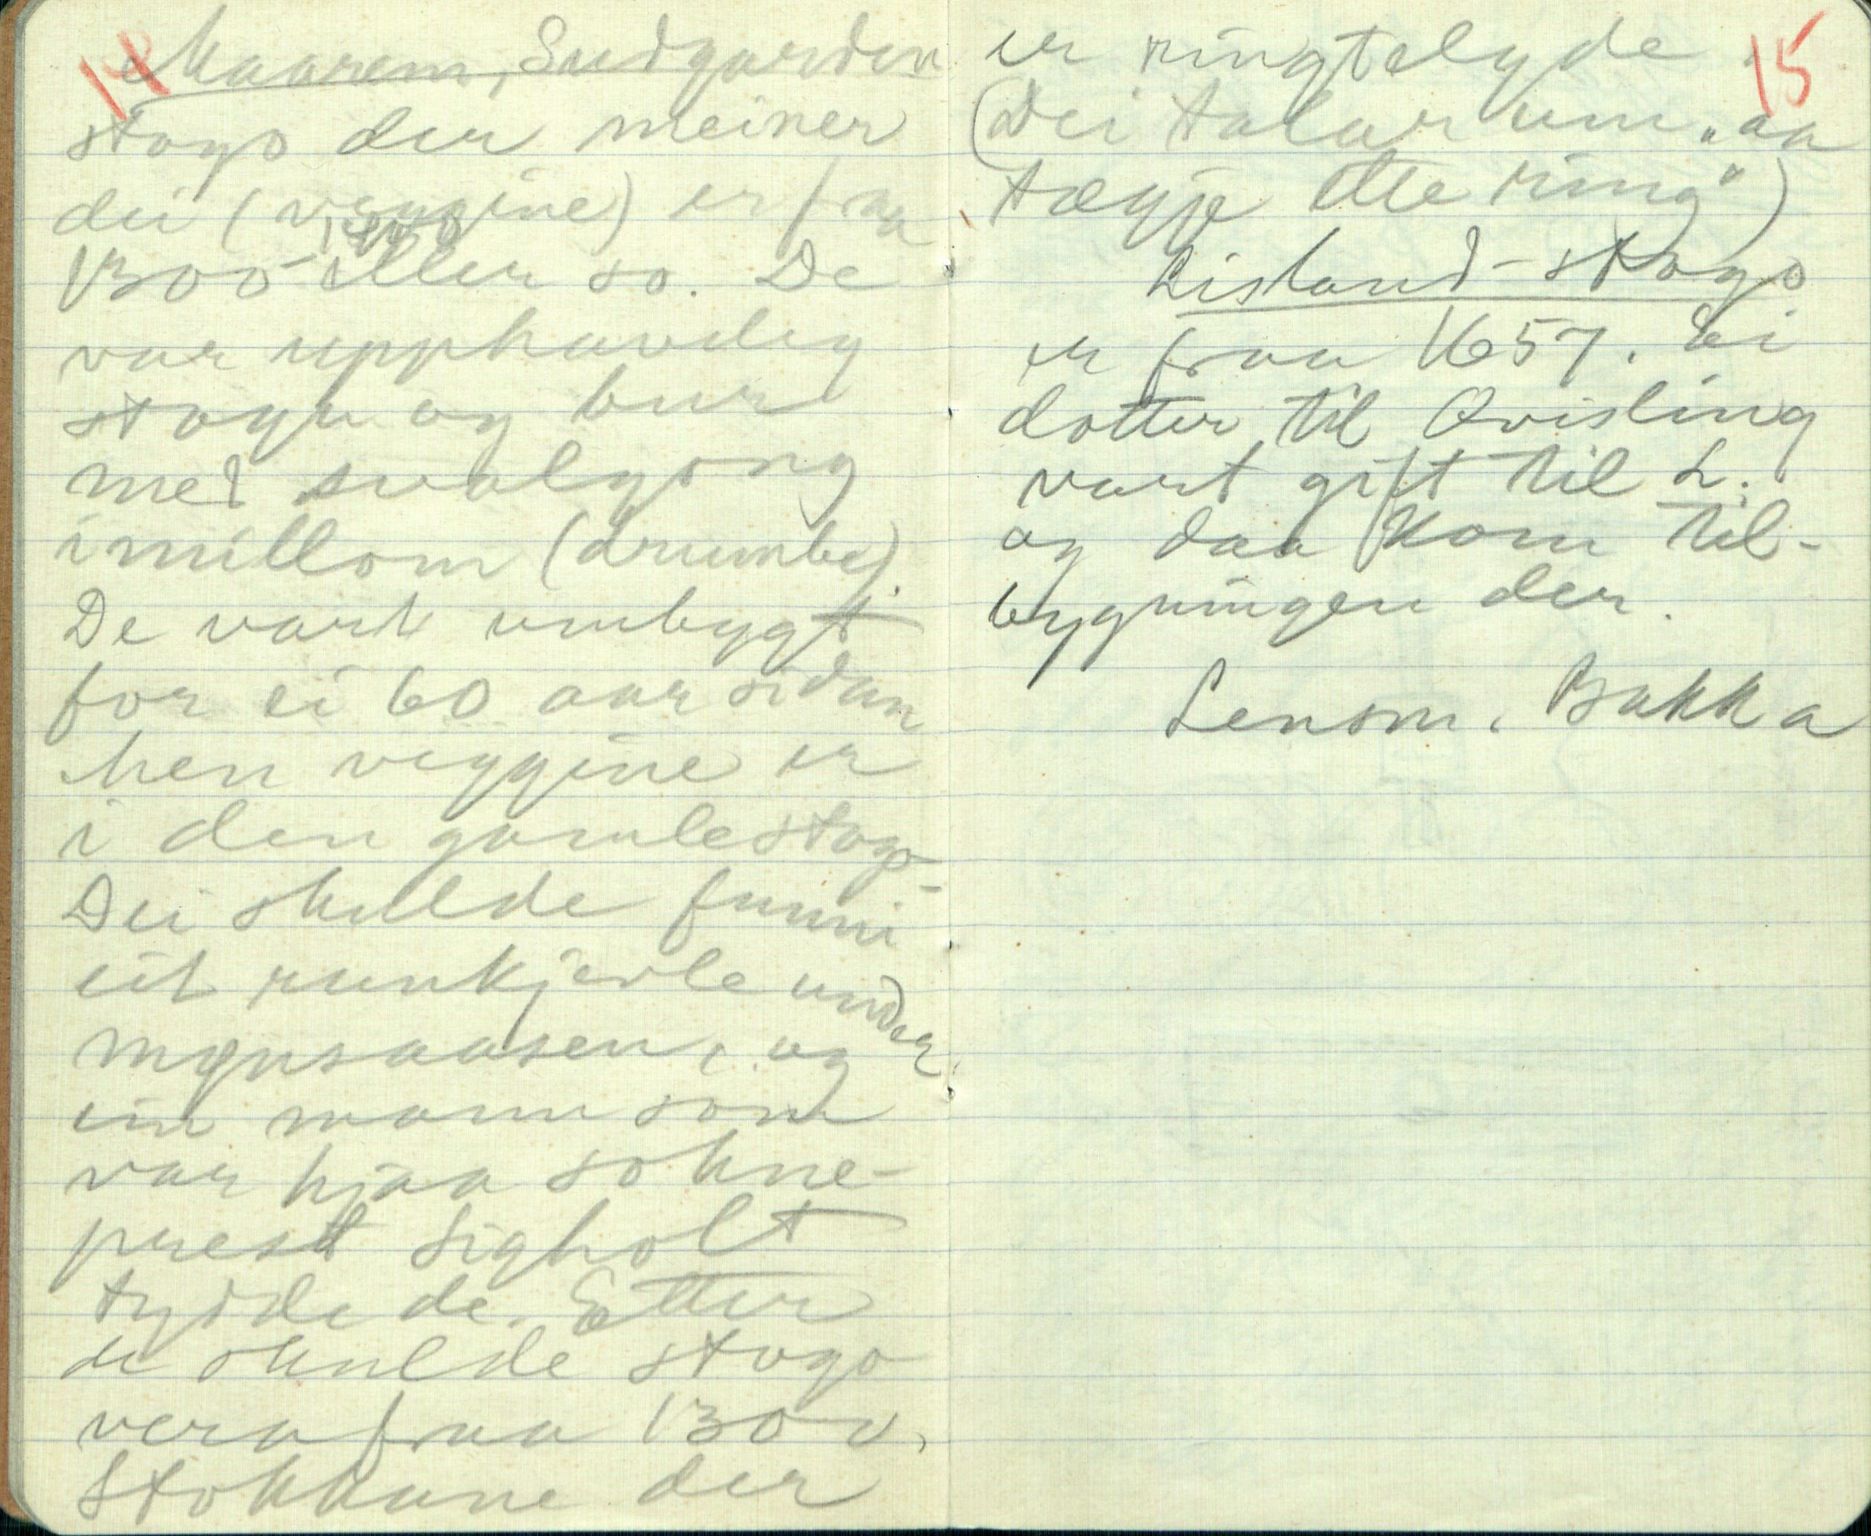 14
Maarem, Sudgarden
stogo der meiner
dei (veggine) er fraa
1300 eller so. De
var upphavleg
stogu og bur
med svalgong
imillom (drumbe).
De vart umbygt
for ei 60 aar sidan
men veggine er
i den gamlestogo.
Dei skulde funni
eit runkjevle under
mynsaasen, og
ein mann som
var hjaa sokne-
prest Sigholt
tydde de. Etter
de skulde stogo
vera fraa 1300.
Stokkane der
15
er ringtelgde
(Dei talar um "aa
tægje ette ring")
Lisland-stogo
er fraa 1657. Ei
dotter til Qvisling
vart gift til L.
og daa kom til-
bygningen der.
Lensm. Bakka